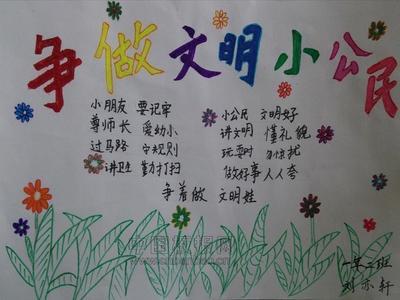 争做文明小公民
小朋友 要记牢
尊师长 爱幼小
过马路 守规则
讲卫生 勤打扫
小公民 文明好
讲文明 懂礼貌
玩耍时 勿惊扰
做好事 人人夸
争着做 文明娃
一年二班
刘亦轩